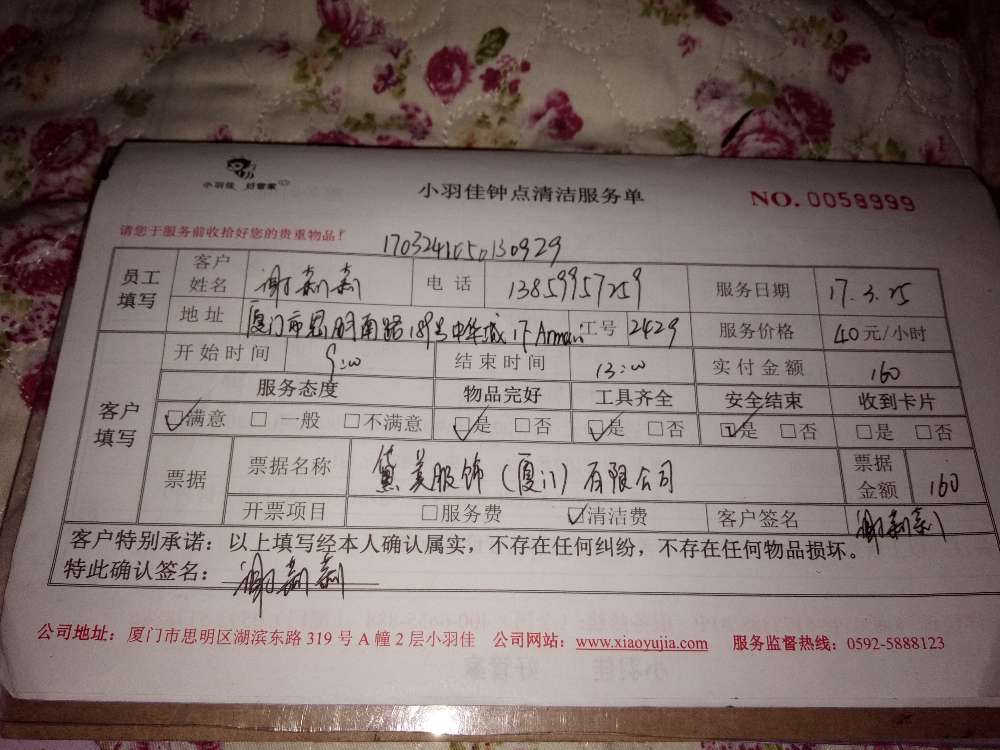 小羽佳 好管家
小羽佳钟点清洁服务单
NO. 0058999
请您于服务前收拾好您的贵重物品!
员工填写 客户姓名 谢莉莉 电话 13859957259 服务日期 17.3.25
地址 厦门市思明南路189号中华城1F Armani 工号 2429 服务价格 40元/小时
客户填写 开始时间 9:00 结束时间 13:00 实付金额 160
服务态度 物品完好 工具齐全 安全结束 收到卡片
☑满意 □一般 □不满意 ☑是 □否 ☑是 □否 ☑是 □否 □是 □否
票据 票据名称 黛美服饰(厦门)有限公司 票据金额 160
开票项目 □服务费 ☑清洁费 客户签名
客户特别承诺:以上填写经本人确认属实,不存在任何纠纷,不存在任何物品损坏。
特此确认签名:
公司地址:厦门市思明区湖滨东路 319 号 A 幢 2 层小羽佳 公司网站:www.xiaoyujia.com 服务监督热线:0592-5888123